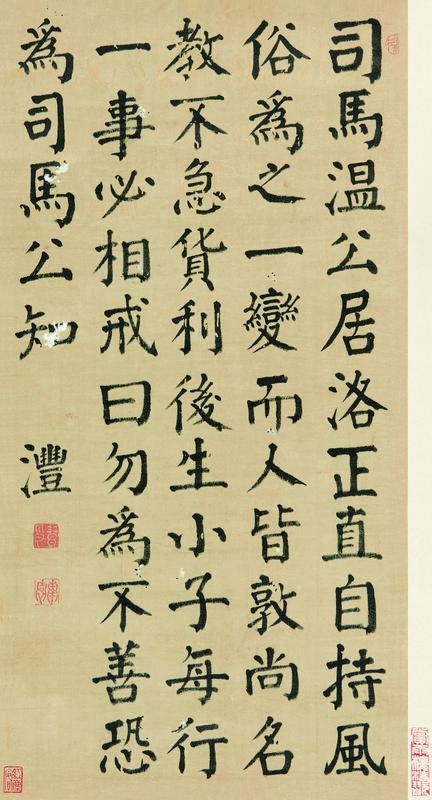 司馬温公居洛正直自持風
俗為之一變而人皆敦尚名
教不急貨利後生小子每行
一事必相戒曰勿為不善恐
為司馬公知
灃